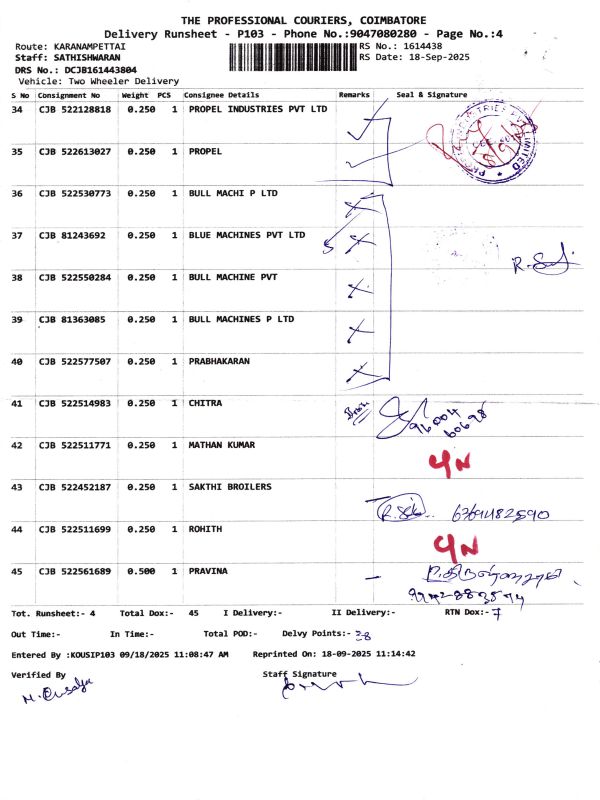 THE PROFESSIONAL COURIERS, COIMBATORE
Delivery Runsheet - P103 - Phone No.:9047080280 - Page No.:4
Route: KARANAMPETTAI RS No.: 1614438
Staff: SATHISHWARAN RS Date: 18-Sep-2025
DRS No.: DCJB161443804
Vehicle: Two Wheeler Delivery
S No Consignment No Weight PCS Consignee Details Remarks Seal & Signature
34 CJB 522128818 0.250 1 PROPEL INDUSTRIES PVT LTD
35 CJB 522613027 0.250 1 PROPEL
36 CJB 522530773 0.250 1 BULL MACHI P LTD
37 CJB 81243692 0.250 1 BLUE MACHINES PVT LTD 5
38 CJB 522550284 0.250 1 BULL MACHINE PVT
39 CJB 81363085 0.250 1 BULL MACHINES P LTD
40 CJB 522577507 0.250 1 PRABHAKARAN
41 CJB 522514983 0.250 1 CHITRA 96004 60698
42 CJB 522511771 0.250 1 MATHAN KUMAR 4N
43 CJB 522452187 0.250 1 SAKTHI BROILERS
44 CJB 522511699 0.250 1 ROHITH 4N
45 CJB 522561689 0.500 1 PRAVINA
Tot. Runsheet:- 4 Total Dox:- 45 I Delivery:- II Delivery:- RTN Dox:- 7
Out Time:- In Time:- Total POD:- Delvy Points:- 38
Entered By :KOUSIP103 09/18/2025 11:08:47 AM Reprinted On: 18-09-2025 11:14:42
Verified By Staff Signature